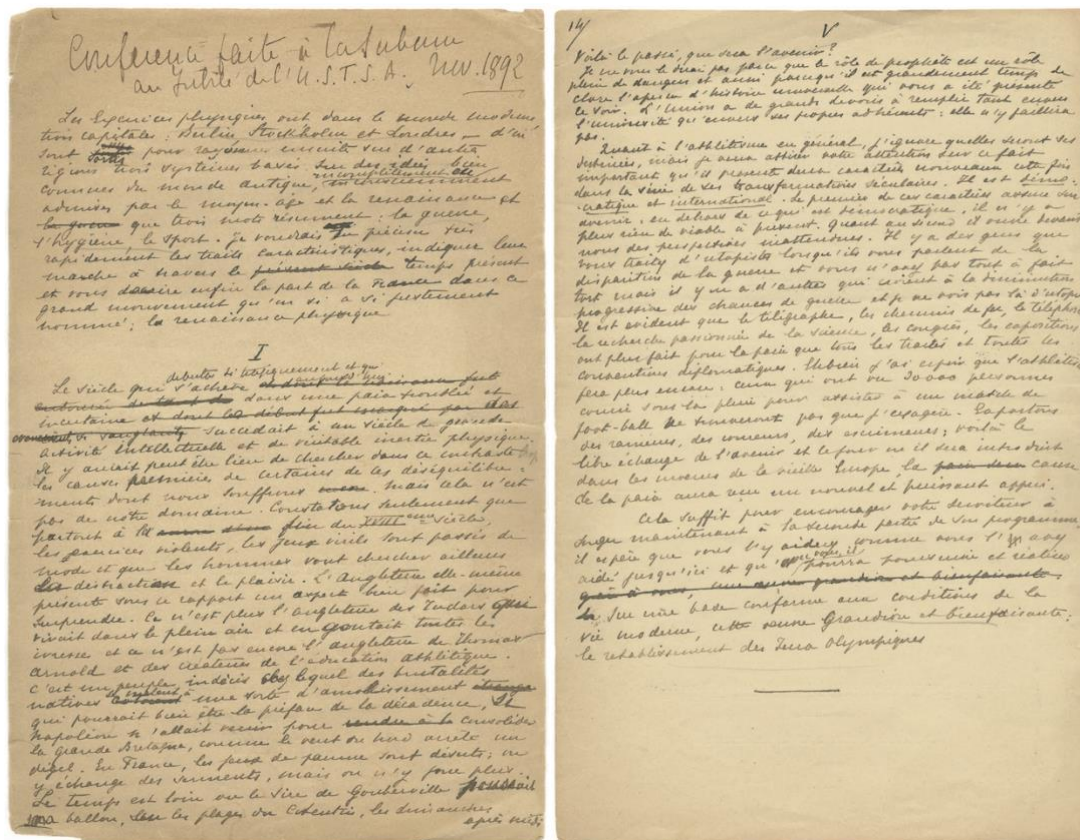 Conférence faite à la Sorbonne
au Jubilé de l'U.S.T.S.A. Nov. 1892
Les Exercices physiques ont dans le monde moderne
trois capitales : Berlin Stockholm et Londres – d'où
sont sortis pour rayonner ensuite sur d'autres
régions trois systèmes basés sur des idées bien
connues du monde antique, incomplètement et
inconsciemment
admises par le moyen-age et la renaissance et
la guerre que trois mots résument : la guerre,
l'hygiène, le sport. Je voudrais en préciser très
rapidement les traits caractéristiques, indiquer leur
marche à travers le présent siècle temps présent
et vous dire enfin la part de la France dans ce
grand mouvement qu'on a si justement
nommé : la renaissance physique
I
débuta si tragiquement et qui
Le siècle qui s'achève aujourd'hui
dans une paix troublée et
incertaine et dont le début fut marqué par des
évènements si sanglants succédait à un siècle de grande
activité intellectuelle et de véritable inertie physique.
Il y aurait peut être lieu de chercher dans ce contraste
les causes premières de certains de ces déséquilibre-
ments dont nous souffrons. mais cela n'est
pas de notre domaine. Constatons seulement que
partout à la fin du XVIIIme siècle,
les exercices violents, les jeux virils sont passés de
mode et que les hommes vont chercher ailleurs
la distraction et le plaisir. L'Angleterre elle-même
présente sous ce rapport un aspect bien fait pour
surprendre. Ce n'est plus l'angleterre des Tudors qui
vivait dans le plein air et en goutait toutes les
ivresses et ce n'est pas encore l'angleterre de Thomas
Arnold et des créateurs de l'éducation athlétique.
C'est un peuple indécis chez lequel des brutalités
natives se mêlent à une sorte d'amollissement étrange
qui pourrait bien être la préface de la décadence, si
Napoléon n'allait venir pour rendre à la consolider
la grande Bretagne, comme le vent du nord arrête un
dégel. En France, les jeux de paume sont déserts ; on
y échange des serments, mais on n'y joue plus.
Le temps est loin ou le Sire de Gouberville poussait
son ballon, sur les plages du Cotentin, les dimanches
après midi
14/
V
Voilà le passé, que sera l'avenir ?
Je ne vous le dirai pas parce que le rôle de prophète est un rôle
plein de dangers et aussi parcequ'il est grandement temps de
clore l'aperçu d'histoire universelle qui vous a été présenté
ce soir. L'Union a de grands devoirs à remplir tant envers
l'université qu'envers ses propres adhérents : elle n'y faillira
pas.
Quant à l'athlétisme en général, j'ignore quelles seront ses
destinées, mais je veux attirer votre attention sur ce fait
important qu'il présente deux caractères nouveaux cette fois
dans la série de ses transformations séculaires. Il est démo-
cratique et international. Le premier de ces caractères assure son
avenir : en dehors de ce qui est démocratique, il n'y a
plus rien de viable à présent. Quant au second il ouvre devant
nous des perspectives inattendues. Il y a des gens que
vous traitez d'utopistes lorsqu'ils vous parlent de la
disparition de la guerre et vous n'avez pas tout à fait
tort mais il y en a d'autres qui croient à la diminution
progressive des chances de guerre et je ne vois pas là d'utopie.
Il est évident que le télégraphe, les chemins de fer, le téléphone
la recherche passionnée de la science, les congrès, les expositions
ont plus fait pour la paix que tous les traités et toutes les
conventions diplomatiques. Eh bien j'ai espoir que l'athlétisme
fera plus encore : ceux qui ont vu 30 000 personnes
courir sous la pluie pour assister à un match de
foot-ball ne trouveront pas que j'exagère. Exportons
des rameurs, des coureurs, des escrimeurs ; voilà le
libre échange de l'avenir et le jour ou il sera introduit
dans les mœurs de la vieille Europe la paix cause
de la paix aura reçu un nouvel et puissant appui.
Cela suffit pour encourager votre serviteur à
songer maintenant à la seconde partie de son programme
il espère que vous l'y aiderez comme vous l'avez
aidé jusqu'ici et qu'avec vous il pourra poursuivre et réaliser
grandiose et bienfaisante
sur une base conforme aux conditions de la
vie moderne, cette œuvre grandiose et bienfaisante :
le rétablissement des Jeux Olympiques